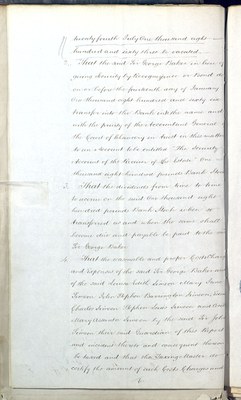 twenty fourth July One thousand eight
hundred and sixty three be vacated.
2. That the said Sir George Baker in lieu of
giving security by Recognizance or Bond do
on or before the fourteenth day of January
One thousand eight hundred and sixty six
transfer into the Bank into the name and
with the privity of the Accountant General
the Court of Chancery in trust in this matter
to an account to be entitled "The Security
Account of the Receiver of the Estate" One
thousand eight hundred pounds Bank Stock
3. That the dividends from time to time
to accrue on the said One thousand eight
hundred pounds Bank Stock when so
transferred as and when the same shall
become due and payable be paid to the said
Sir George Baker
4. That the reasonable and proper Costs Charges
and Expenses of the said Sir George Baker and
of the said Simeon Mary Jane
Simeon John Stephen Barrington Simeon
Charles Simeon Stephen Simeon and
Mary Simeon by the said Sir John
Simeon their said Guardian of this Report
and incident thereto and consequent thereon
be taxed and that the Taxing Master do
certify the amount of such Costs Charges and